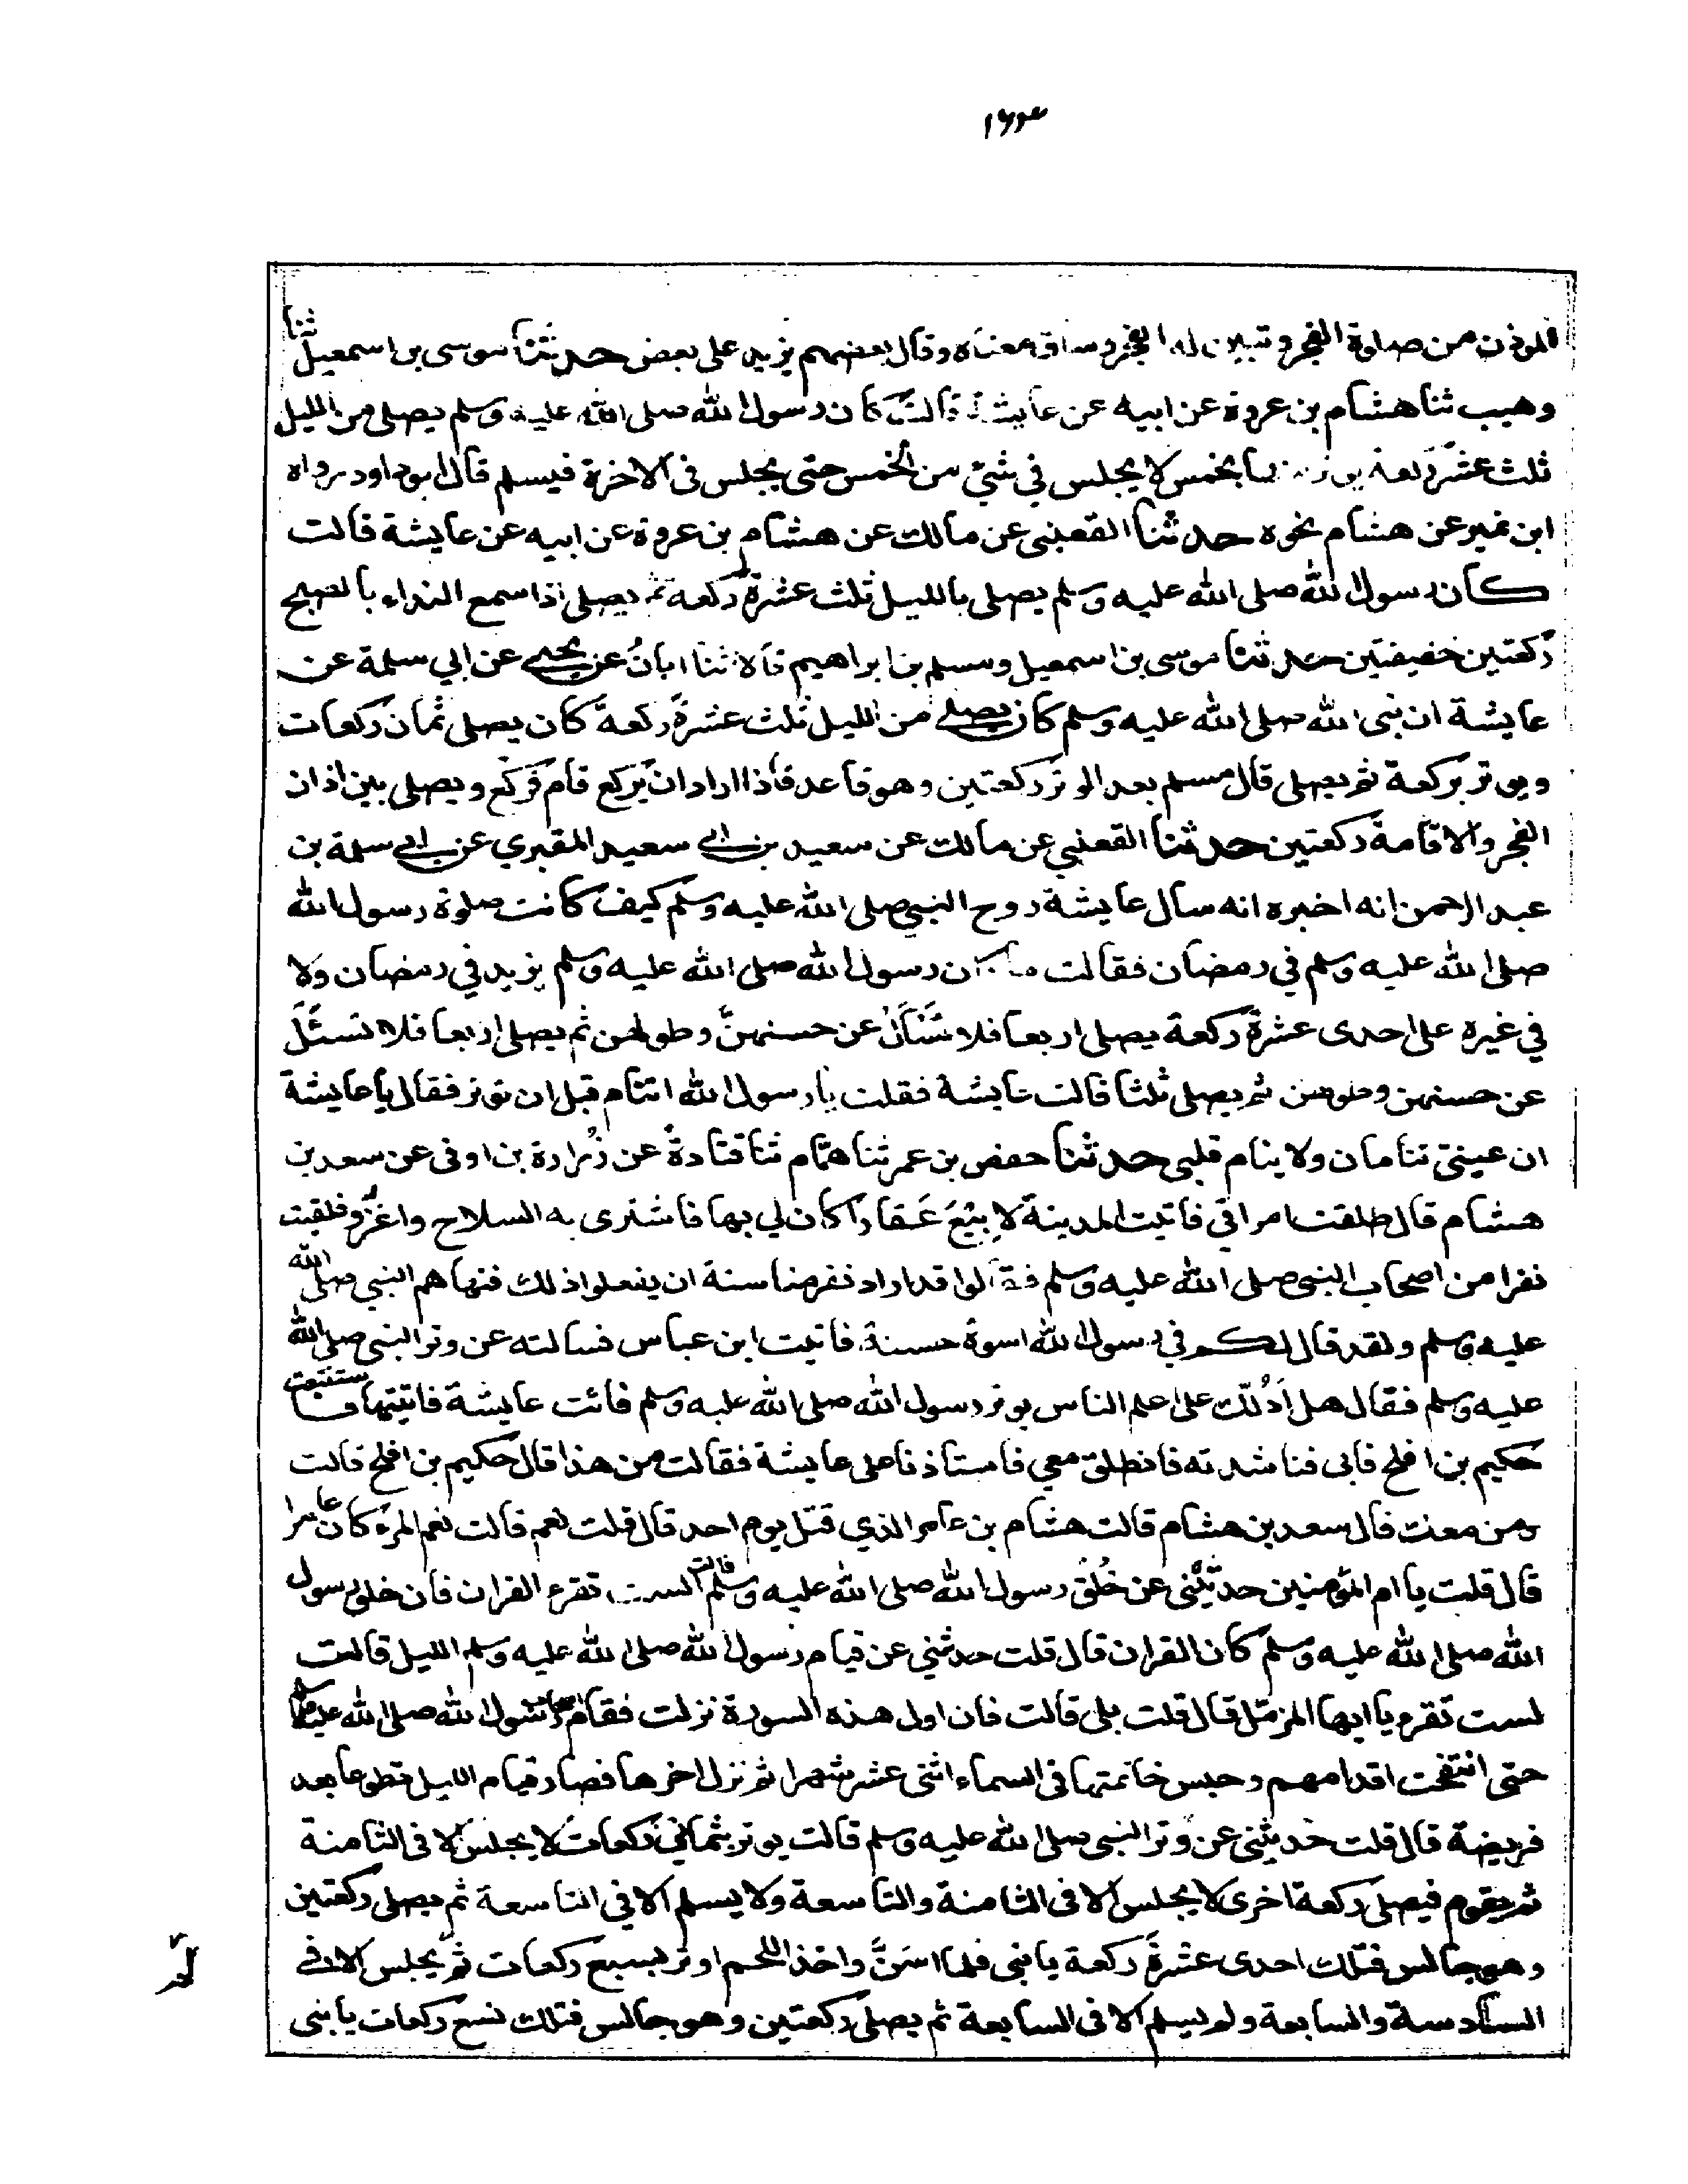 ١٦٣
المؤذن من صلوة الفجر وتبين له الفجر وساق معناه وقال بعضهم يزيد على بعض حدثنا موسى بن اسمعيل ثنا
وهيب ثنا هشام بن عروة عن ابيه عن عايشة قالت كان رسول الله صلى الله عليه وسلم يصلى من الليل
ثلث عشرة ركعة يوتر منها بخمس لا يجلس في شئ من الخمس حتى يجلس فى الآخرة فيسلم قال ابو داود رواه
ابن نمير عن هشام نحوه حدثنا القعنبى عن مالك عن هشام بن عروة عن ابيه عن عايشة قالت
كان رسول الله صلى الله عليه وسلم يصلى بالليل ثلث عشرة ركعة ثم يصلى اذا سمع النداء بالصبح
ركعتين خفيفتين حدثنا موسى بن اسمعيل ومسلم بن ابراهيم قالا ثنا ابانُ عن يحيى عن ابي سلمة عن
عايشة ان نبى الله صلى الله عليه وسلم كان يصلى من الليل ثلث عشرةَ ركعةً كان يصلى ثمان ركعات
ويوتر بركعة ثم يصلى قال مسلم بعد الوتر ركعتين وهو قاعد فاذا اراد ان يركع قام فركع ويصلى بين اذان
الفجر والاقامة ركعتين حدثنا القعنبي عن مالك عن سعيد بن ابى سعيد المقبري عن ابى سلمة بن
عبد الرحمن انه اخبره انه سال عايشة زوج النبي صلى الله عليه وسلم كيف كانت صلوة رسول الله
صلى الله عليه وسلم في رمضان فقالت ما كان رسول الله صلى الله عليه وسلم يزيد في رمضان ولا
في غيره على احدى عشرةَ ركعة يصلى اربعا فلا تَسْأَلْ عن حسنهنَّ وطولهن ثم يصلى اربعا فلا تسئَلْ
عن حسنهن وطولهن ثم يصلى ثلثا قالت عايشة فقلت يا رسول الله اتنام قبل ان توتر فقال يا عايشة
ان عينىّ تنامان ولا ينام قلبى حدثنا حفص بن عمر ثنا همّام ثنا قتادةُ عن زُرارة بن اوفى عن سعد بن
هشام قال طلقت امراتي فاتيت المدينة لابِيْعَ عَقارًا كان لي بها فاشترى به السلاح واغزُو فلقيت
نفرا من اصحاب النبى صلى الله عليه وسلم فقالوا قد اراد نفر منا ستة ان يفعلوا ذلك فنهاهم النبي صلى الله
عليه وسلم ولقد قال لكم في رسول الله اسوةٌ حسنة، فاتيت ابن عباس فسالته عن وتر النبى صلى الله
عليه وسلم فقال هل اَدُلّك على اعلم الناس بوتر رسول الله صلى الله عليه وسلم فائت عايشة فاتيتها فاستتبعت
حكيم بن افلح فابى فناشدته فانطلق معي فاستاذنا على عايشة فقالت من هذا قال حكيم بن افلح قالت
ومن معك قال سعد بن هشام قالت هشام بن عامر الذي قتل يوم احد قال قلت نعم قالت نعم المرء كان عامرا
قال قلت يا ام المؤمنين حدثيْنى عن خُلُق رسول الله صلى الله عليه وسلم قالت الست تقرء القران فان خلق رسول
الله صلى الله عليه وسلم كان القران قال قلت حدثيني عن قيام رسول الله صلى الله عليه وسلم الليل قالت
لست تقرء يا ايها المزمّل قال قلت بلى قالت فان اول هذه السورة نزلت فقام اصحاب رسول الله صلى الله عليه وسلم
حتى انتفخت اقدامهم وحبس خاتمتها فى السماء اثنى عشر شهرا ثم نزل اخرها فصار قيام الليل تطوعا بعد
فريضة قال قلت حدثينى عن وتر النبى صلى الله عليه وسلم قالت يوتر بثمانى ركعات لا يجلس الا فى الثامنة
ثم يقوم فيصلى ركعة اخرى لا يجلس الا فى الثامنة والتاسعة ولا يسلم الا في التاسعة ثم يصلى ركعتين
وهو جالس فتلك احدى عشرةَ ركعة يا بنى فلما اسَنَّ واخذ اللحم اوتر بسبع ركعات لم يجلس الا فى
السادسة والسابعة ولم يسلم الا فى السابعة ثم يصلى ركعتين وهو جالس فتلك تسع ركعات يا بنى